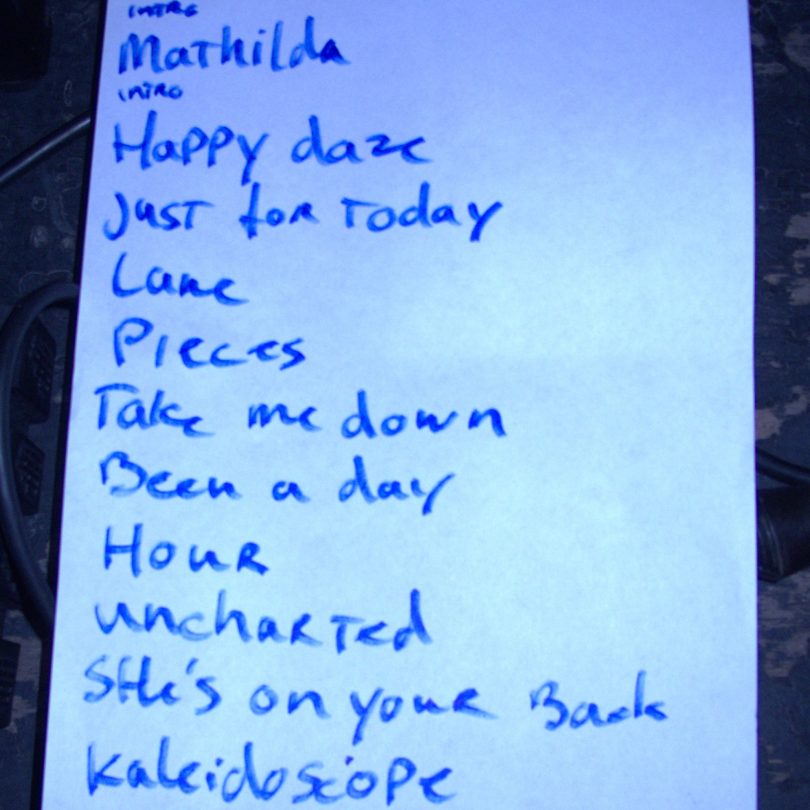 INTRO
Mathilda
INTRO
Happy daze
Just for Today
Lane
Pieces
Take me down
Been a day
Hour
uncharted
SHe's on your Back
Kaleidoscope